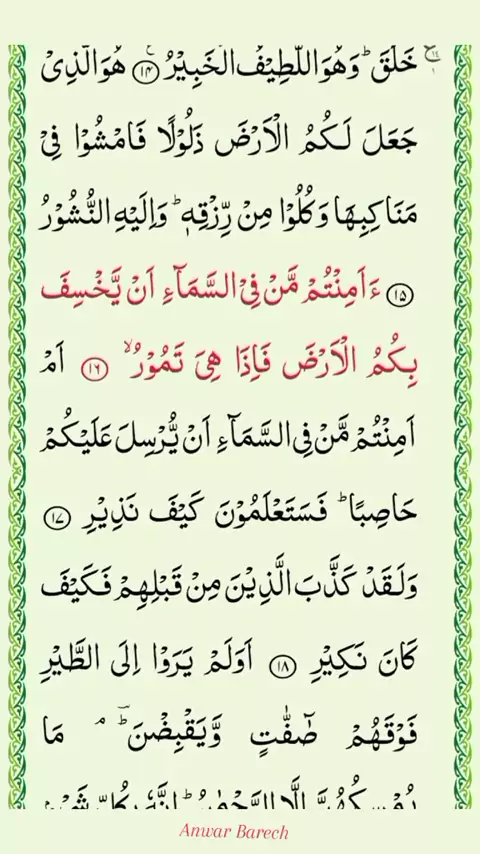 خَلَقَ ؕ وَهُوَ اللَّطِیْفُ الْخَبِیْرُ ﴿۱۴﴾ هُوَ الَّذِیْ
جَعَلَ لَكُمُ الْاَرْضَ ذَلُوْلًا فَامْشُوْا فِیْ
مَنَاكِبِهَا وَكُلُوْا مِنْ رِّزْقِهٖ ؕ وَاِلَیْهِ النُّشُوْرُ
﴿۱۵﴾ ءَاَمِنْتُمْ مَّنْ فِی السَّمَآءِ اَنْ یَّخْسِفَ
بِكُمُ الْاَرْضَ فَاِذَا هِیَ تَمُوْرُ ۙ ﴿۱۶﴾ اَمْ
اَمِنْتُمْ مَّنْ فِی السَّمَآءِ اَنْ یُّرْسِلَ عَلَیْكُمْ
حَاصِبًا ؕ فَسَتَعْلَمُوْنَ كَیْفَ نَذِیْرِ ﴿۱۷﴾
وَلَقَدْ كَذَّبَ الَّذِیْنَ مِنْ قَبْلِهِمْ فَكَیْفَ
كَانَ نَكِیْرِ ﴿۱۸﴾ اَوَلَمْ یَرَوْا اِلَی الطَّیْرِ
فَوْقَهُمْ صٰٓفّٰتٍ وَّیَقْبِضْنَ ؔؕ مَا
Anwar Barech